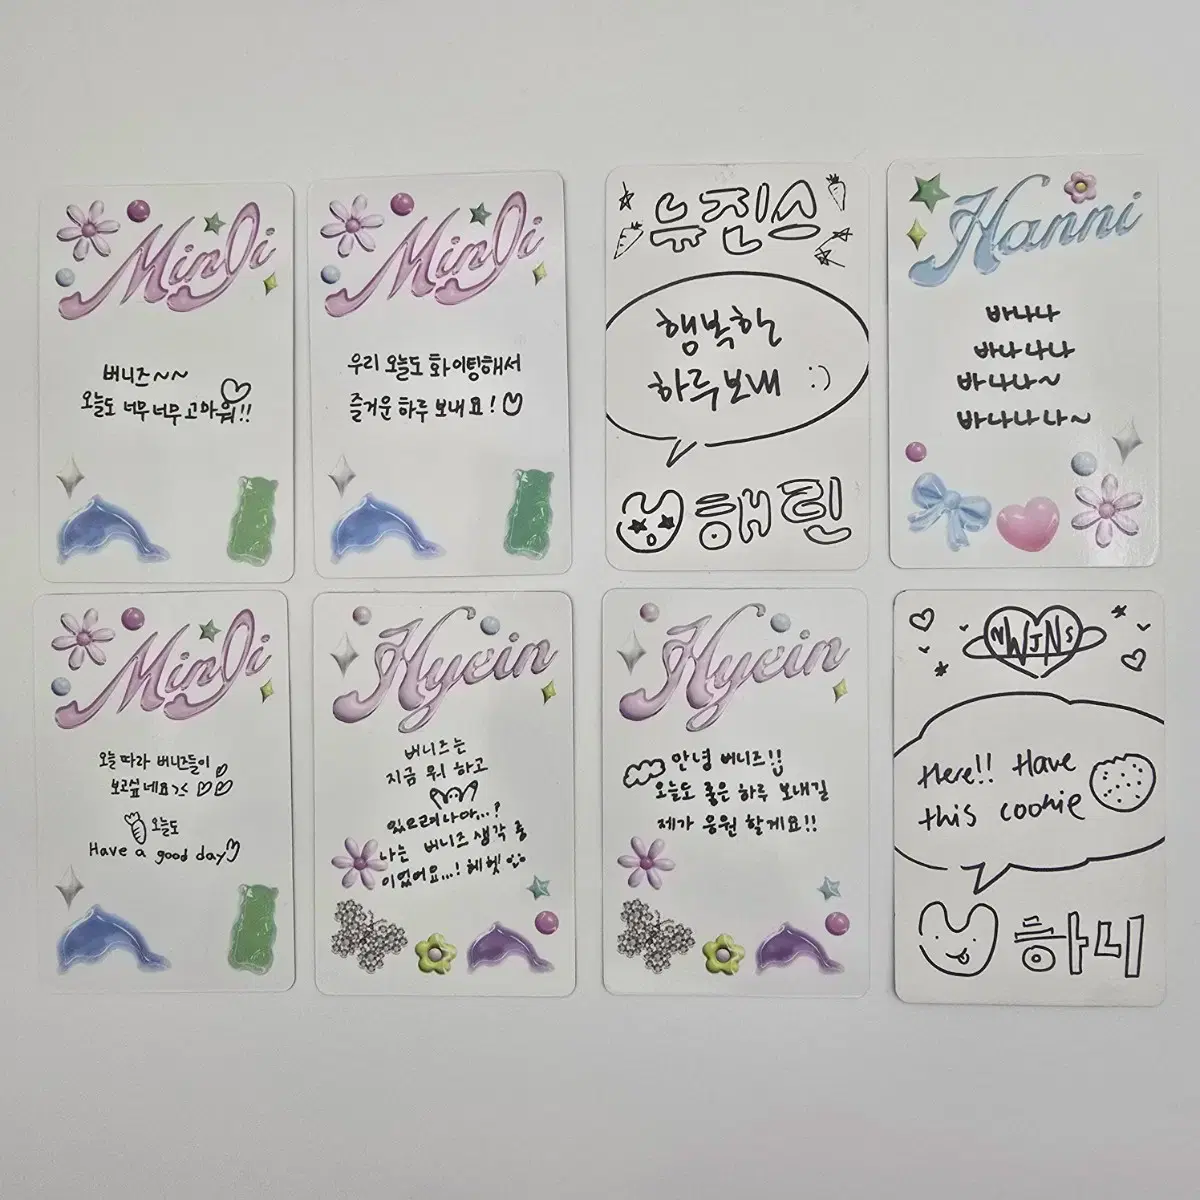 MinJi
버니즈~~
오늘도 너무너무 고마워!!
MinJi
우리 오늘도 화이팅해서
즐거운 하루 보내요!
뉴진스
행복한
하루보내 :)
해린
Hanni
바나나
바나나나
바나나~
바나나나~
MinJi
오늘따라 버니즈들이
보고싶네요><
오늘도
Have a good day
Hyein
버니즈는
지금 뭐 하고
있으려나아...?
나는 버니즈 생각 중
이었어요...! 헤헷
Hyein
안녕 버니즈!!
오늘도 좋은 하루 보내길
제가 응원 할게요!!
NWJNS
Here!! Have
this cookie
하니